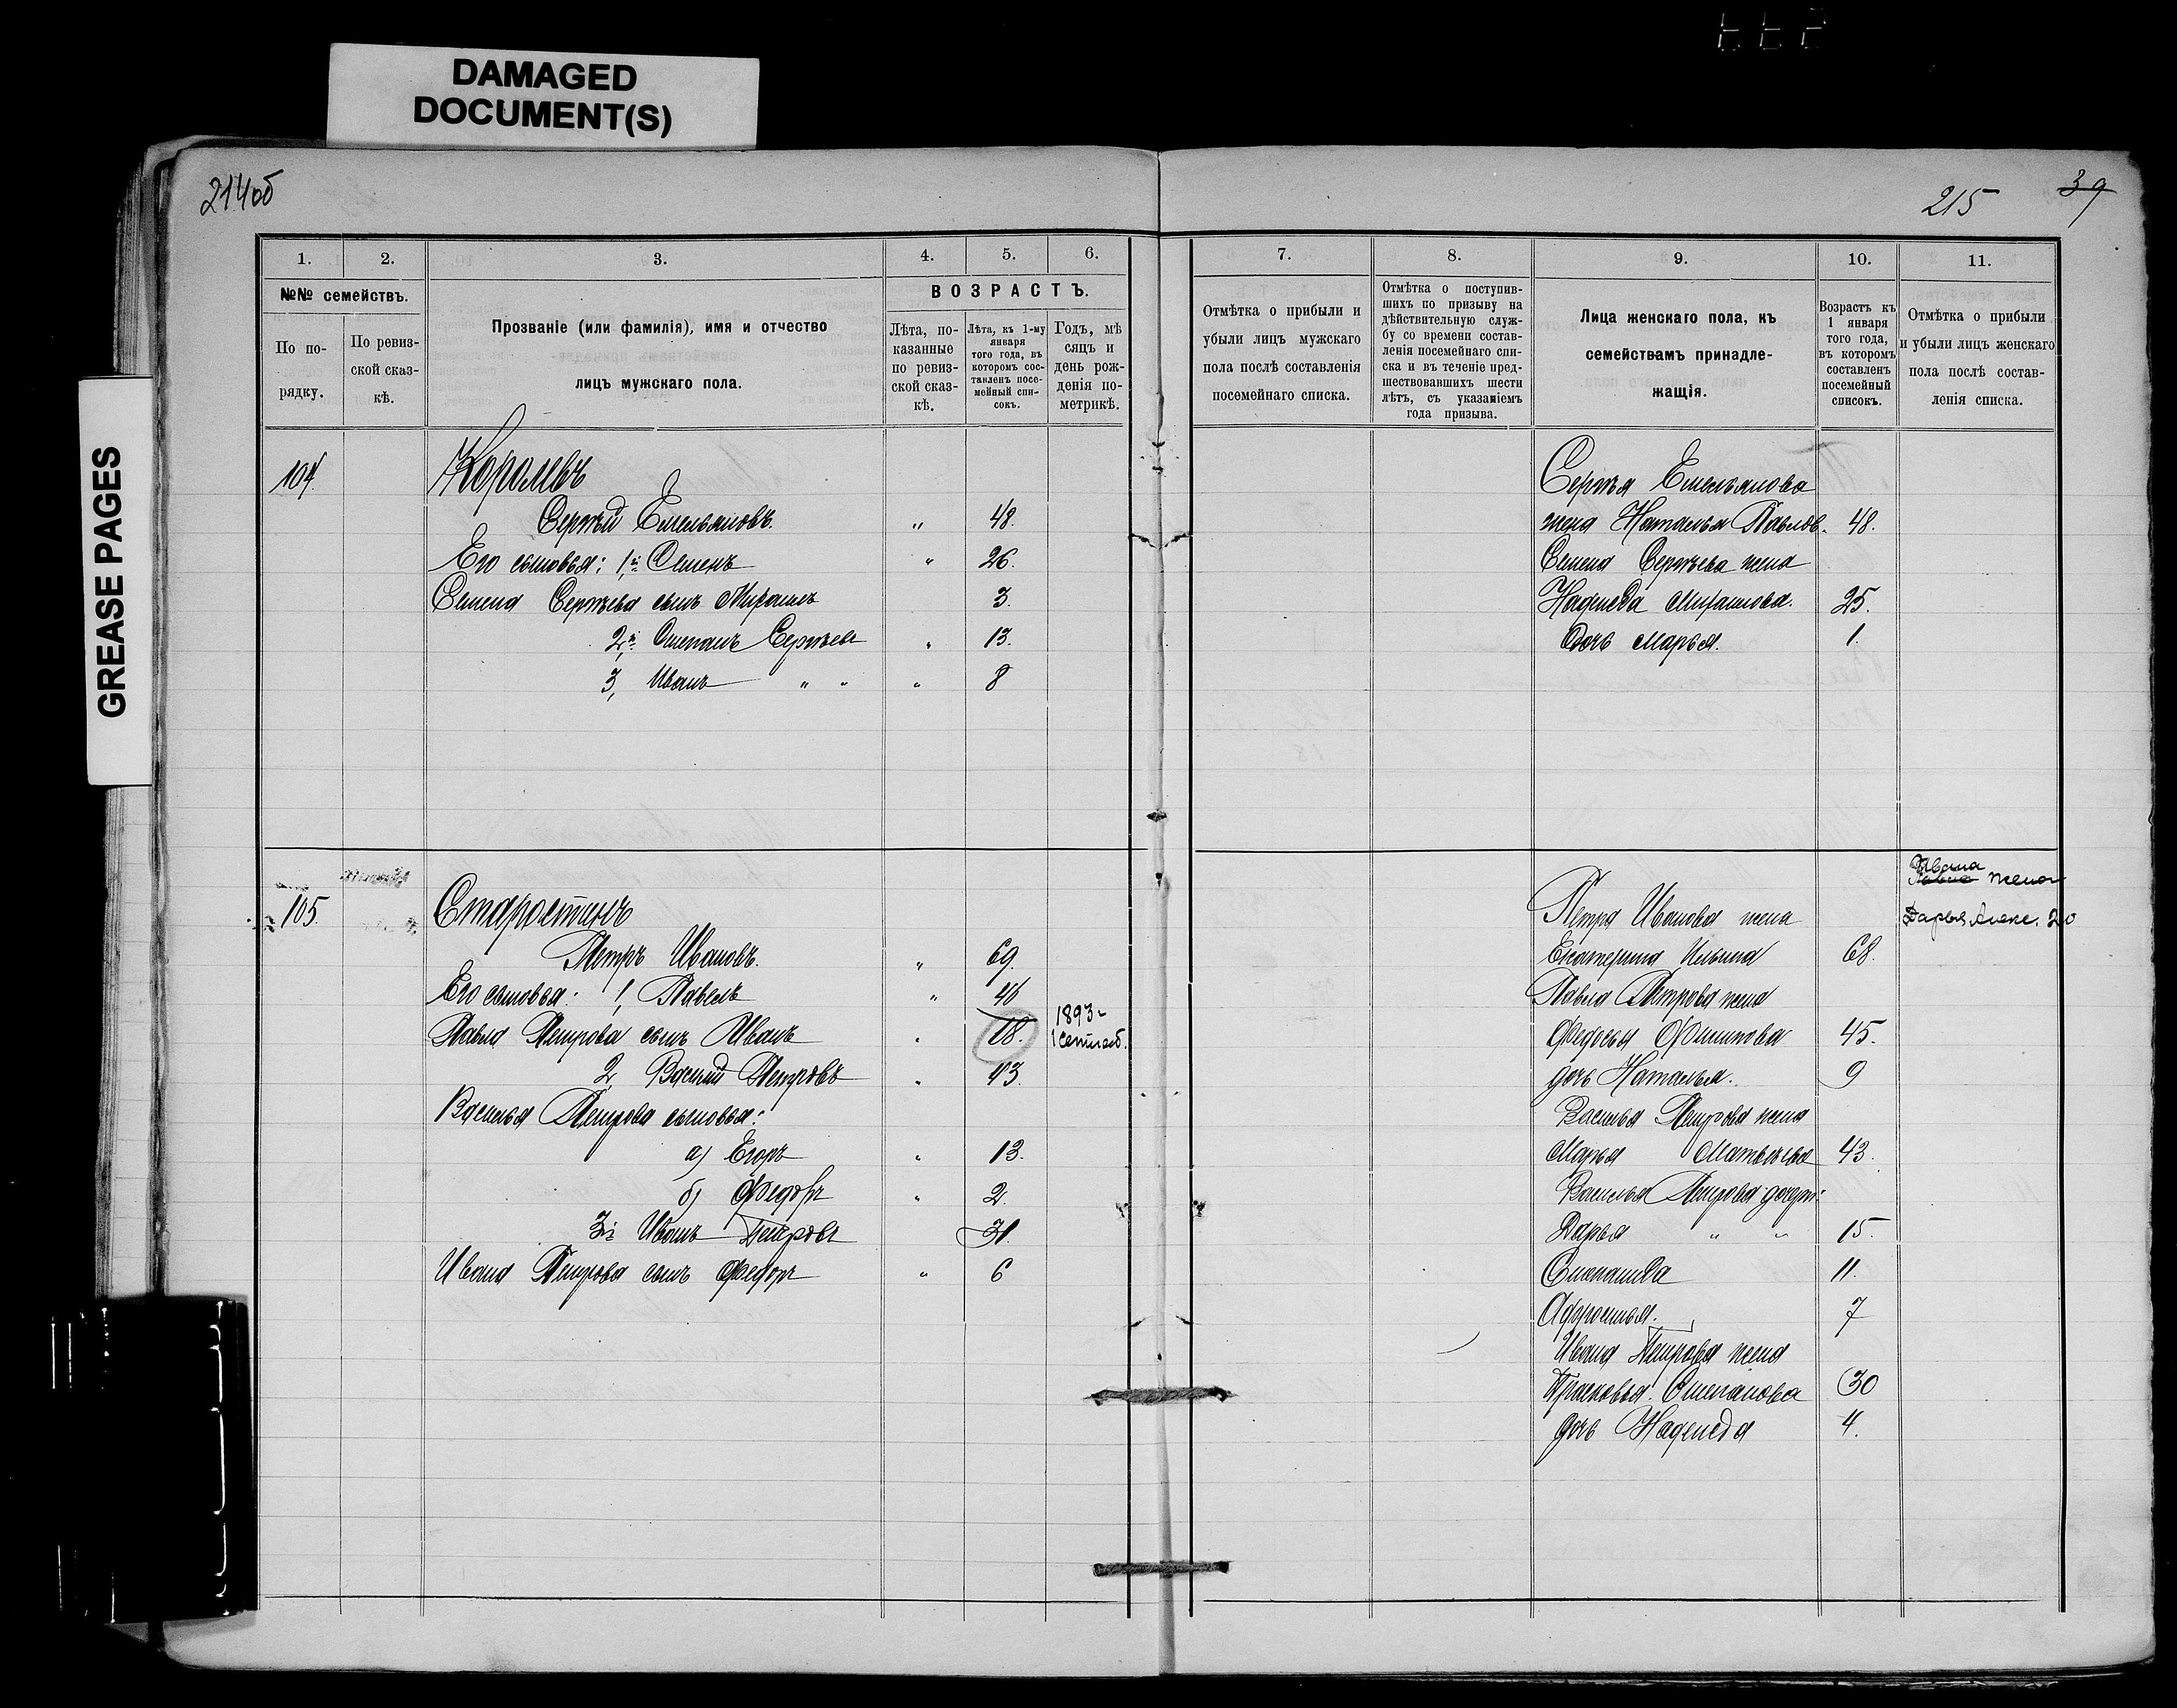 DAMAGED
DOCUMENT(S)
GREASE PAGES
214об
215 39
1. 2. 3. 4. 5. 6. 7. 8. 9. 10. 11.
№№ семействъ.
По по-
рядку.
По ревиз-
ской сказ-
кѣ.
Прозваніе (или фамилія), имя и отчество
лицъ мужскаго пола.
ВОЗРАСТЪ.
Лѣта, по-
казанные
по ревиз-
ской сказ-
кѣ.
Лѣта, къ 1-му
января
того года, въ
которомъ сос-
тавленъ посе-
мейный спи-
сокъ.
Годъ, мѣ
сяцъ и
день рож-
денія по-
метрикѣ.
Отмѣтка о прибыли и
убыли лицъ мужскаго
пола послѣ составленія
посемейнаго списка.
Отмѣтка о поступив-
шихъ по призыву на
дѣйствительную служ-
бу со времени состав-
ленія посемейнаго спи-
ска и въ теченіе пред-
шествовавшихъ шести
лѣтъ, съ указаніемъ
года призыва.
Лица женскаго пола, къ
семействамъ принадле-
жащія.
Возрастъ къ
1 января
того года,
въ которомъ
составленъ
посемейный
списокъ.
Отмѣтка о прибыли
и убыли лицъ женскаго
пола послѣ состав-
ленія списка.
104.
Королевъ
Сергѣй Емельяновъ. " 48.
Его сыновья: 1й Семенъ " 26.
Семена Сергѣева сынъ 3.
2й Степанъ Сергѣевъ " 13.
3, Иванъ " " " 8
Сергѣя Емельянова
жена Наталья Павлов. 48.
Семена Сергѣева жена
Надежда 25.
дочь Марья. 1.
105.
Старостинъ
Петръ Ивановъ. " 69.
Его сыновья: 1, Павелъ " 46
Павла Петрова сынъ Иванъ " 18. 1893-
1 сентяб.
2, Василій Петровъ " 43.
Василья Петрова сыновья:
а) Егоръ " 13.
б) Федоръ " 2.
3й Иванъ Петровъ 31.
Ивана Петрова сынъ Федоръ " 6
Петра Иванова жена
Екатерина Ильина 68.
Павла Петрова жена
Федосья Филипова 45.
дочь Наталья. 9
Василья Петрова жена
Марья Матвѣева 43.
Василья Петрова дочери:
Дарья " " 15.
Степанида 11.
Афросинья. 7
Ивана Петрова жена
Прасковья Степанова 30
дочь Надежда 4.
Ивана
жена
Дарья Алекс. 20